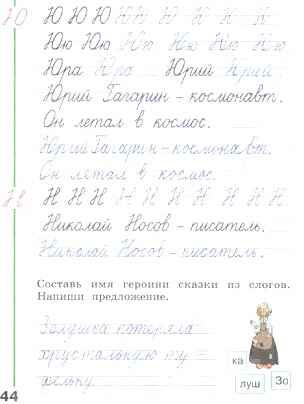 Ю Ю Ю Ю Ю Ю Ю Ю Ю
Юю Юю Юю Юю Юю Юю
Юра Юра Юрий Юрий
Юрий Гагарин – космонавт.
Он летал в космос.
Юрий Гагарин – космонавт.
Он летал в космос.
Н Н Н Н Н Н Н Н Н Н
Николай Носов – писатель.
Николай Носов – писатель.
Составь имя героини сказки из слогов.
Напиши предложение.
Золушка потеряла
хрустальную ту
фельку.
ка
луш
Зо
44